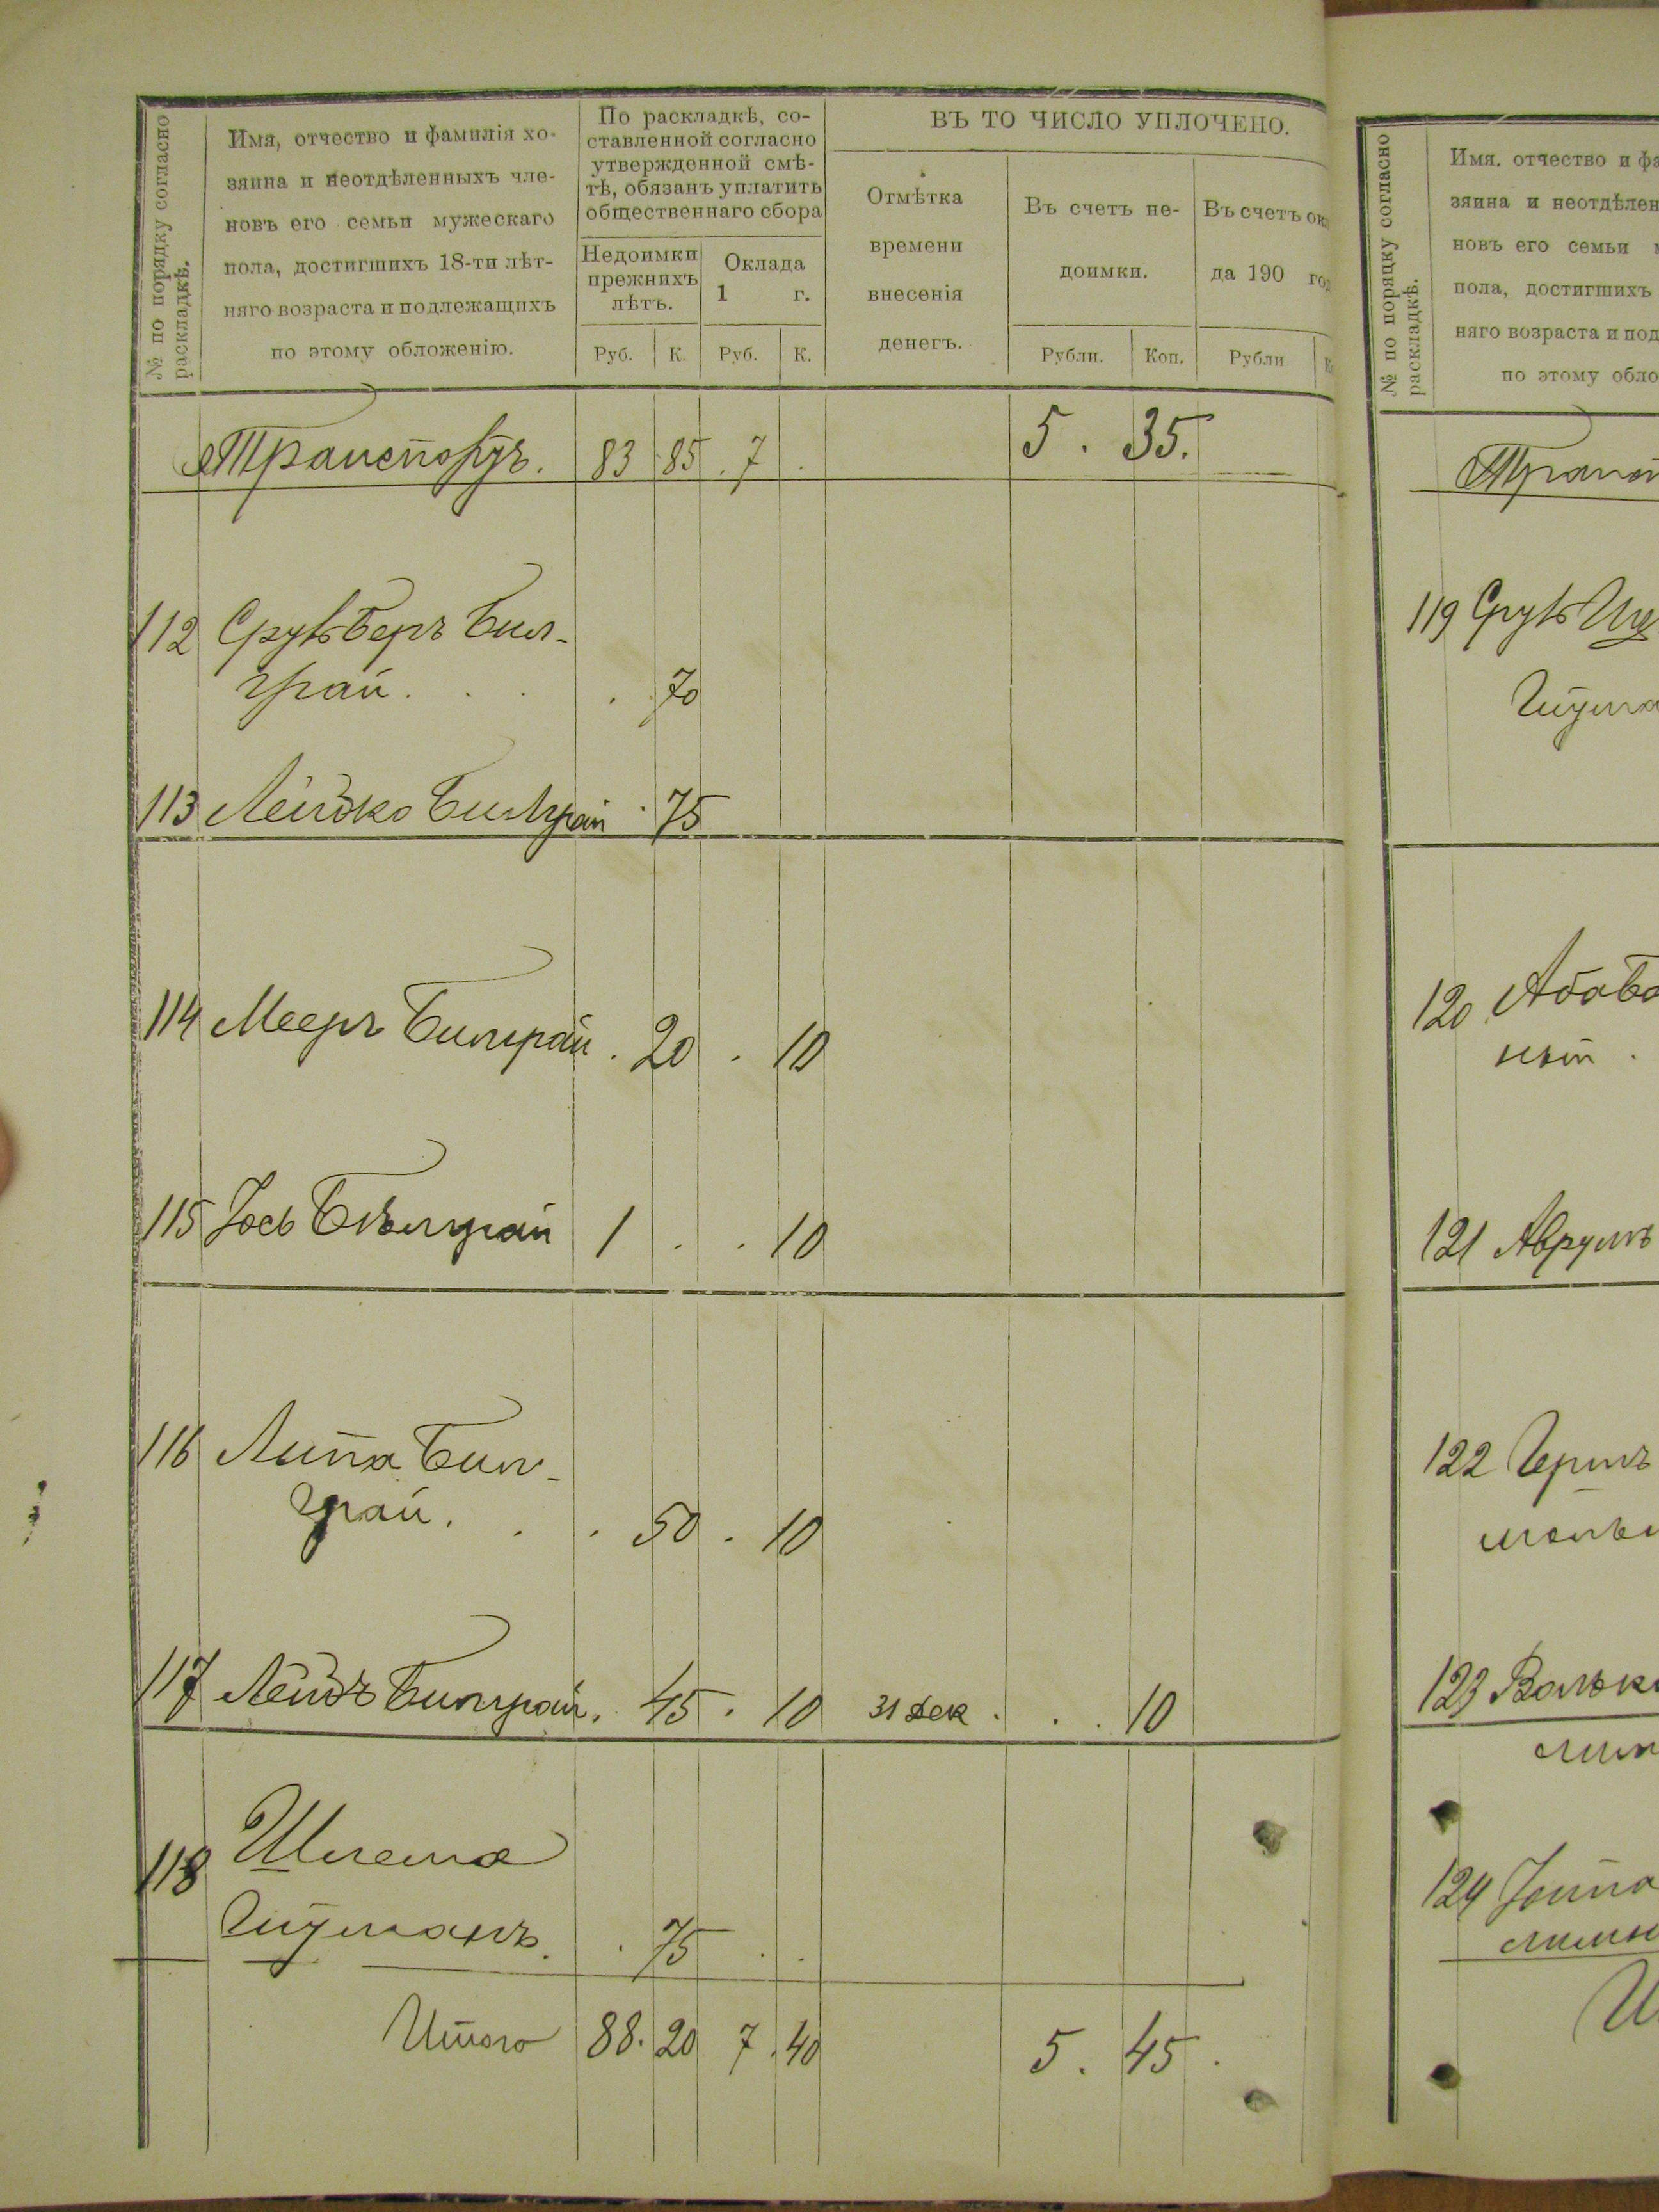 № по порядку согласно
раскладкѣ.
Имя, отчество и фамилія хо-
зяина и неотдѣленныхъ чле-
новъ его семьи мужескаго
пола, достигшихъ 18-ти лѣт-
няго возраста и подлежащихъ
по этому обложенію.
По раскладкѣ, со-
ставленной согласно
утвержденной смѣ-
тѣ, обязанъ уплатить
общественнаго сбора
Недоимки
прежнихъ
лѣтъ.
Оклада
1 г.
Руб. К. Руб. К.
ВЪ ТО ЧИСЛО УПЛОЧЕНО.
Отмѣтка
времени
внесенія
денегъ.
Въ счетъ не-
доимки.
Рубли. Коп.
Въ счетъ
да 190
Рубли
Транспортъ. 83 85 . 7 . 5 . 35.
112 Сруль Беръ Бил-
грай . . . . 70
113 Лейзко Билграй . 75
114 Мееръ Билграй . 20 . 10
115 Іось Билграй 1 . . 10
116 Липа Бил-
грай . . . 50 . 10
117 Лейзъ Билграй . 45 . 10 31 дек . . . 10
118 Шлема
Гитманъ . . 75 . .
Итого 88. 20 7 . 40 5 . 45 .
№ по порядку согласно
раскладкѣ.
Имя. отчество и
зяина и
новъ его семьи
пола, достигшихъ
няго возраста и
по этому
119 Сруль
120
121 Аврумъ
122 Герш
123
124